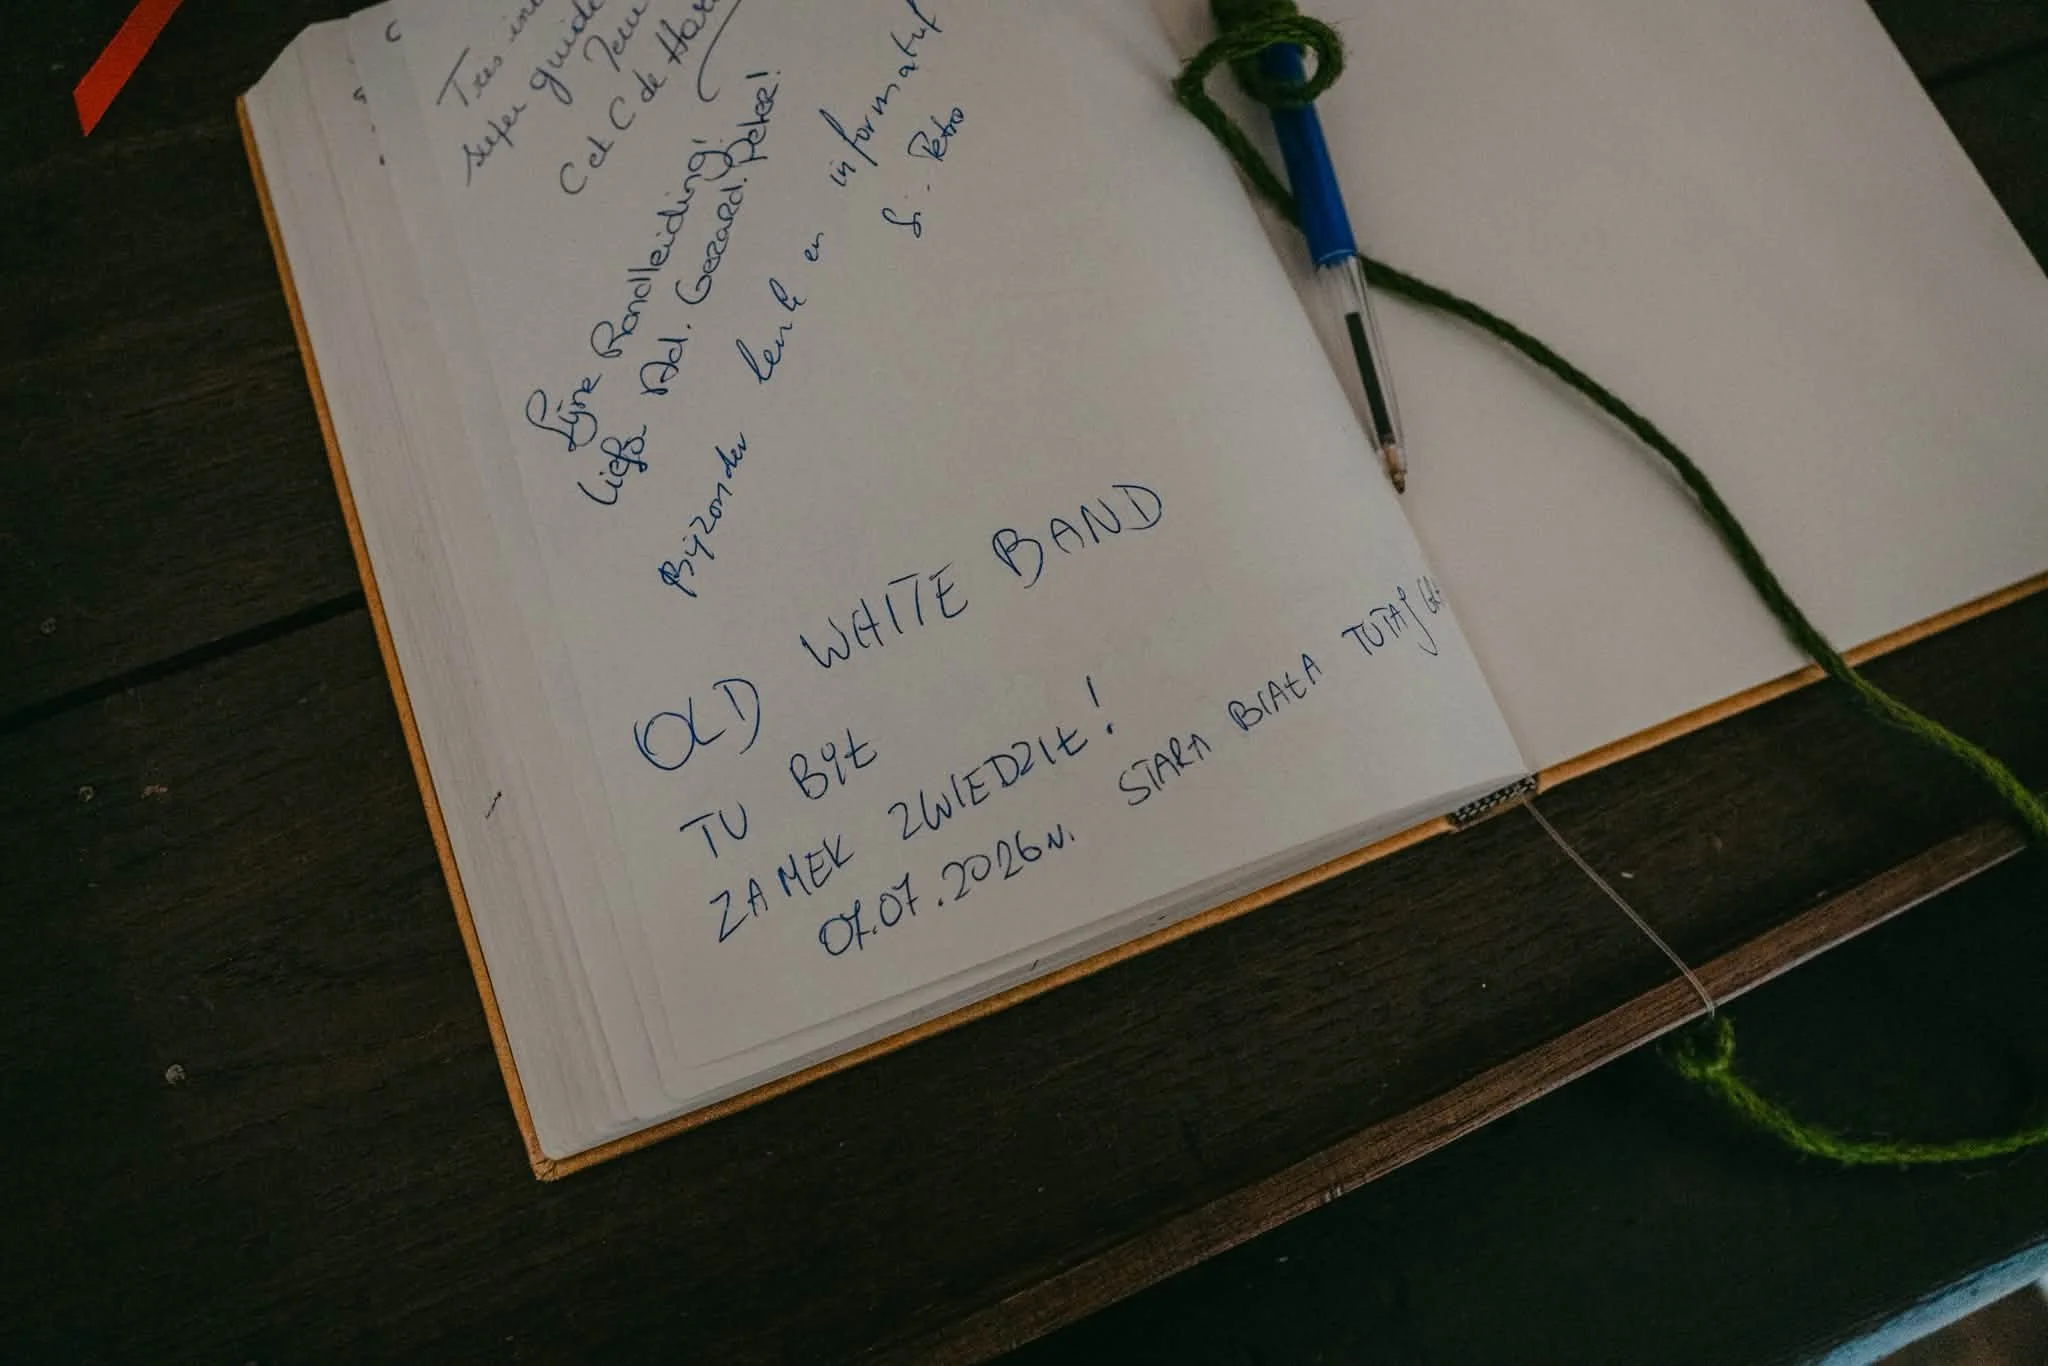 Tres
super guide
C et C de
Fijne Rondleiding!
Liefs Ad. Gerard. Peter!
Bijzonder leuk en informatief
OLD WHITE BAND
TU BYŁ
ZAMEK ZWIEDZIŁ!
07.07.2026 r. STARA BIAŁA TUTAJ